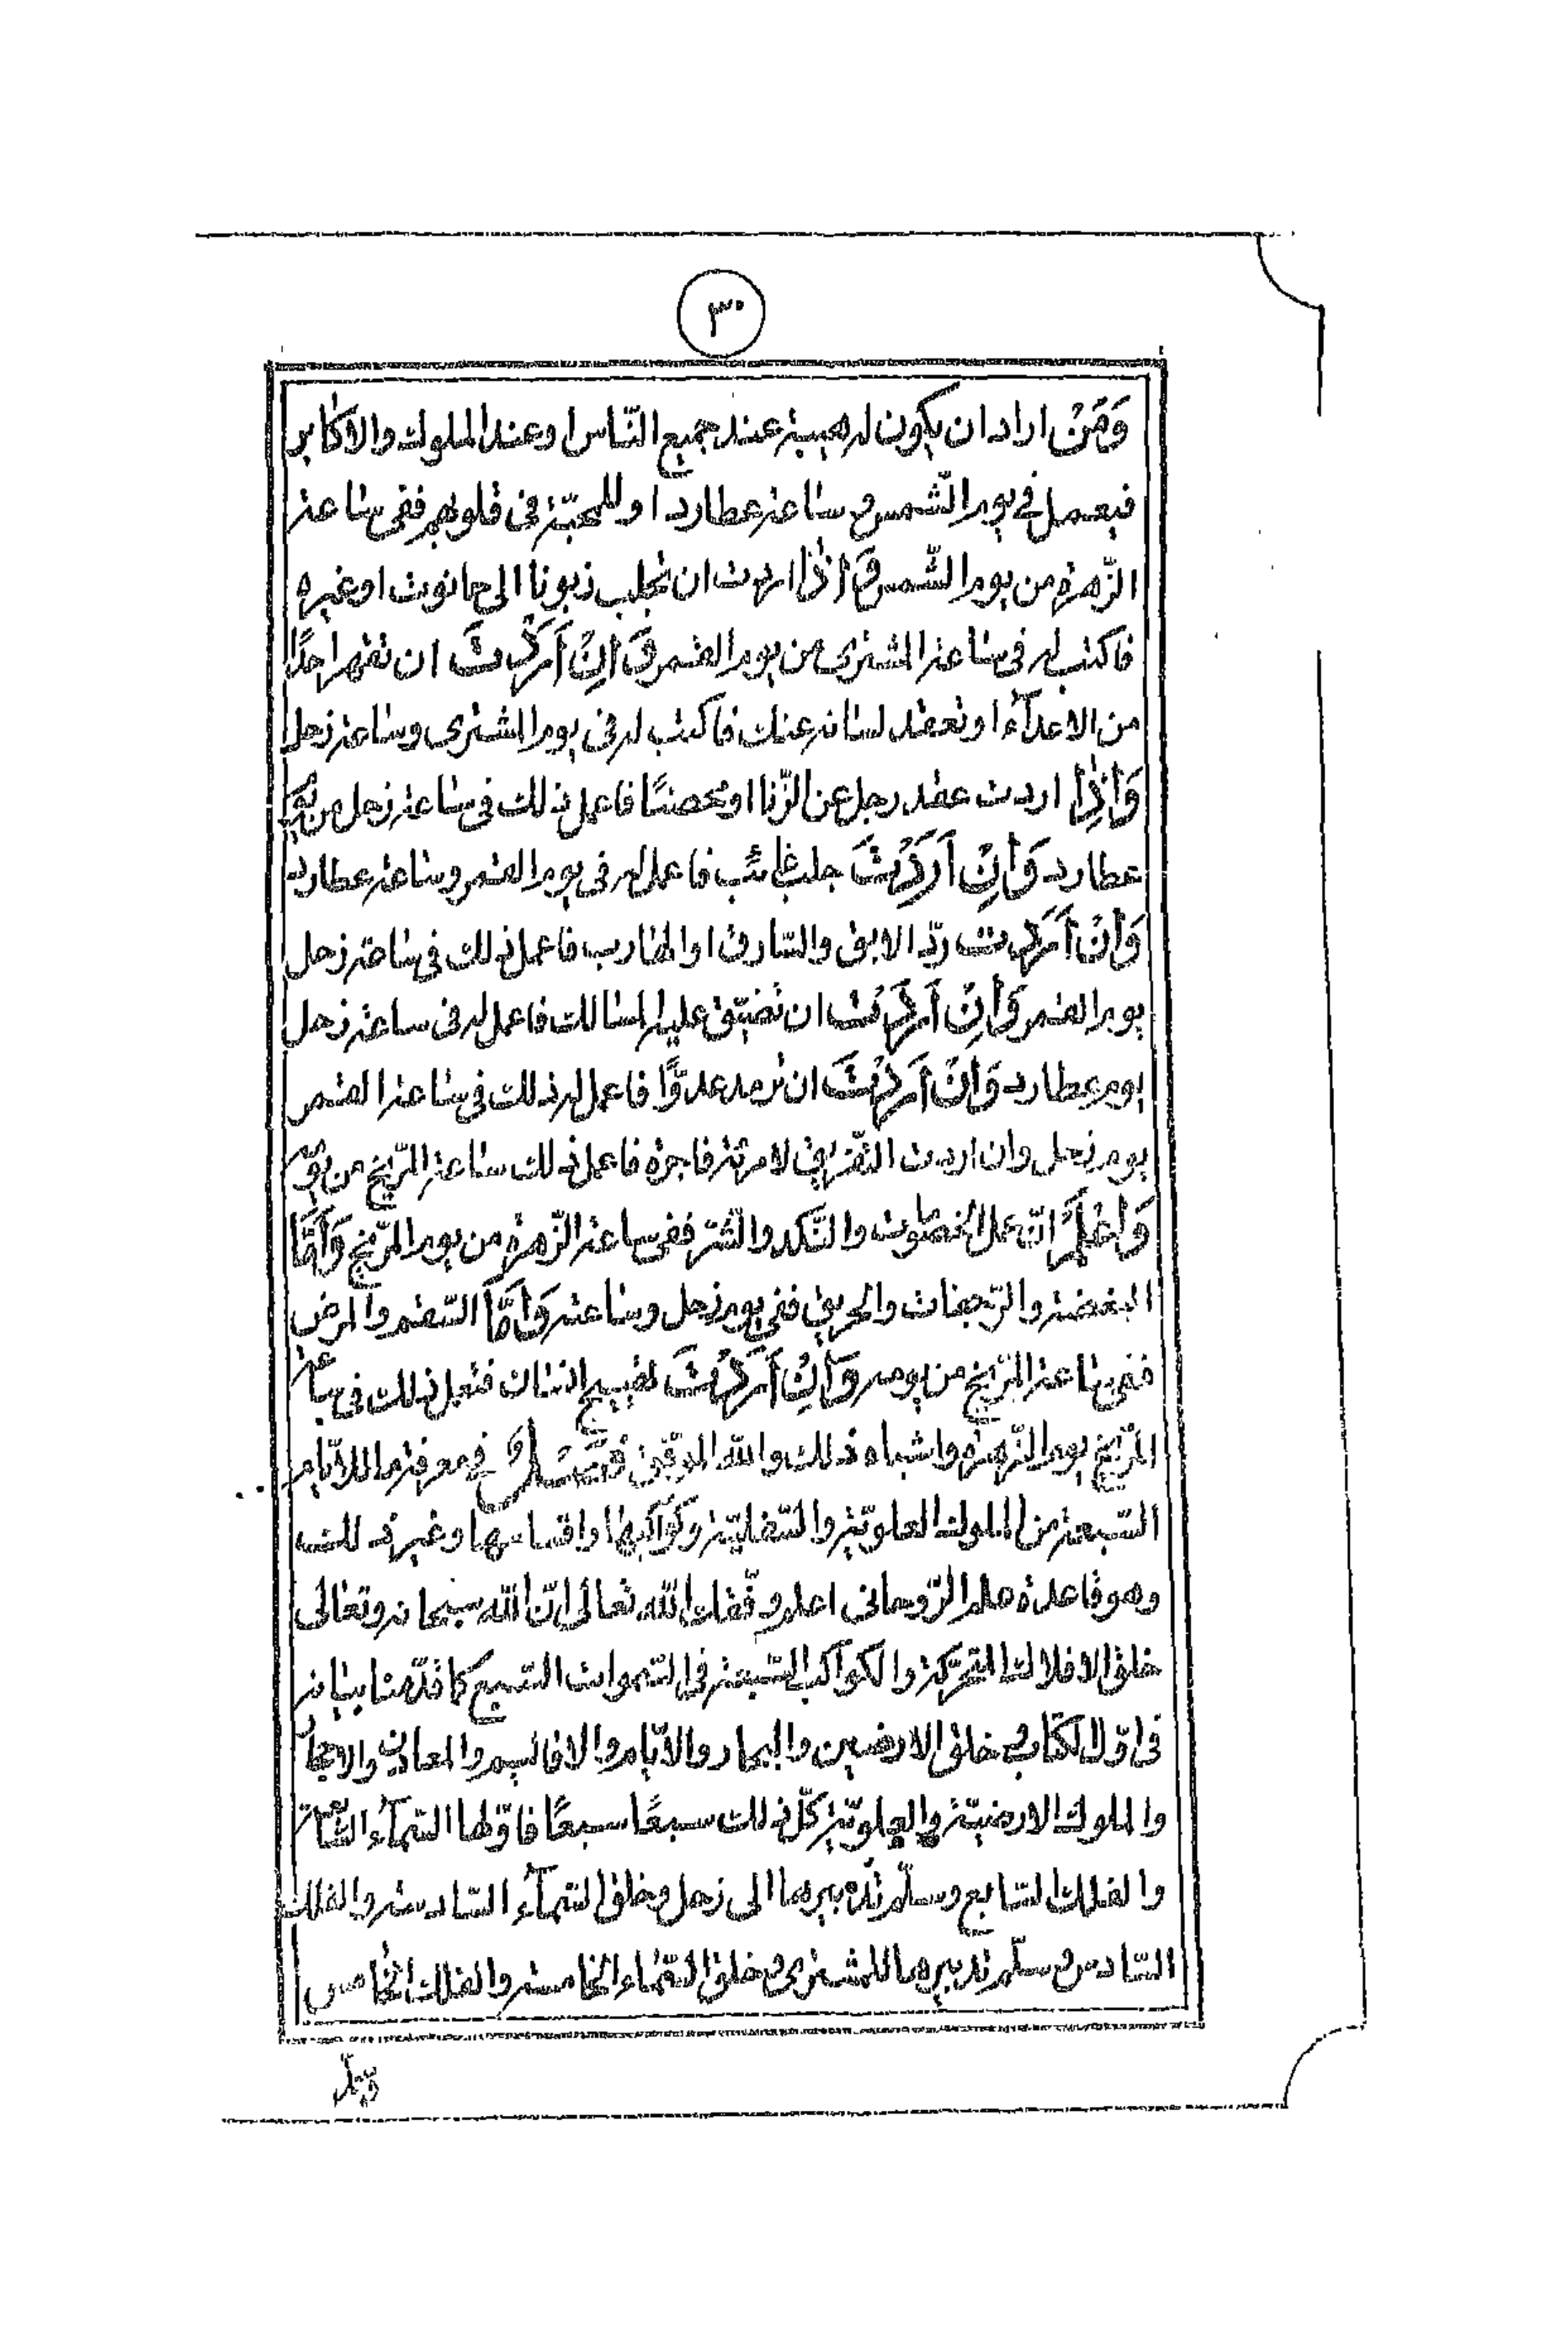 ٣٠
وَمَنْ اراد ان يكون له هيبة عند جميع النّاس او عند الملوك والاكابر
فيعمل في يوم الشّمس وساعة عطارد او للمحبّة في قلوبهم ففي ساعة
الزّهرة من يوم الشّمس وَاِذَا اردت ان تجلب زبونا الى حانوت او غيره
فاكتب له في ساعة المشترى من يوم القمر وَاِنْ اَرَدْتَ ان تقهر احدًا
من الاعدآء او تعقد لسانه عنك فاكتب له في يوم المشترى وساعة زحل
وَاِذَا اردت عقد رجل عن الزّنا او محصنًا فاعمل ذلك في ساعة زحل من يوم
عطارد وَاِنْ اَرَدْتَ جلب غائب فاعمل له في يوم القمر وساعة عطارد
وَاِنْ اَرَدْت ردّ الابق والسّارق او الهارب فاعمل ذلك في ساعة زحل
يوم القمر وَاِنْ اَرَدْتَ ان تُضيّق عليه المسالك فاعمل له في ساعة زحل
يوم عطارد وَاِنْ اَرَدْتَ ان ترمد عدوًّا فاعمل له ذلك في ساعة القمر
يوم زحل وان اردت النّزيف لامرئة فاجرة فاعمل ذلك ساعة المرّيخ من يومه
وَاعْلَمْ انّ عمل الخصومات والنّكد والشّر ففي ساعة الزّهرة من يوم المرّيخ وَاَمَّا
البغضة والرّجفات والحريق ففي يوم زحل وساعته وَاَمَّا السّقم والمرض
ففي ساعة المرّيخ من يومه وَاِنْ اَرَدْتَ تهييج انسان فتعمل ذلك في ساعة
المرّيخ يوم الزّهرة واشباه ذلك والله الموفّق فَصْلٌ في معرفة ما للايّام
السّبعة من الملوك العلويّة والسّفليّة وكواكبها واقسامها وغير ذلك
وهو قاعدة علم الرّوحاني اعلم وفّقك الله تعالى انّ الله سبحانه وتعالى
خلق الافلاك المتحرّكة والكواكب السّبعة في السّموات السّبع كما قدّمنا بيانه
في اوّل الكتاب وخلق الارضين والبحار والايّام والاقاليم والمعادن والاحجار
والملوك الارضيّة والعلويّة كلّ ذلك سبعًا سبعًا فاوّلها السّمآء السّابعة
والفلك السّابع وسلّم تدبيرهما الى زحل وخلق السّمآء السّادسة والفلك
السّادس وسلّم تدبيرهما للمشترى وخلق السّماء الخامسة والفلك الخامس